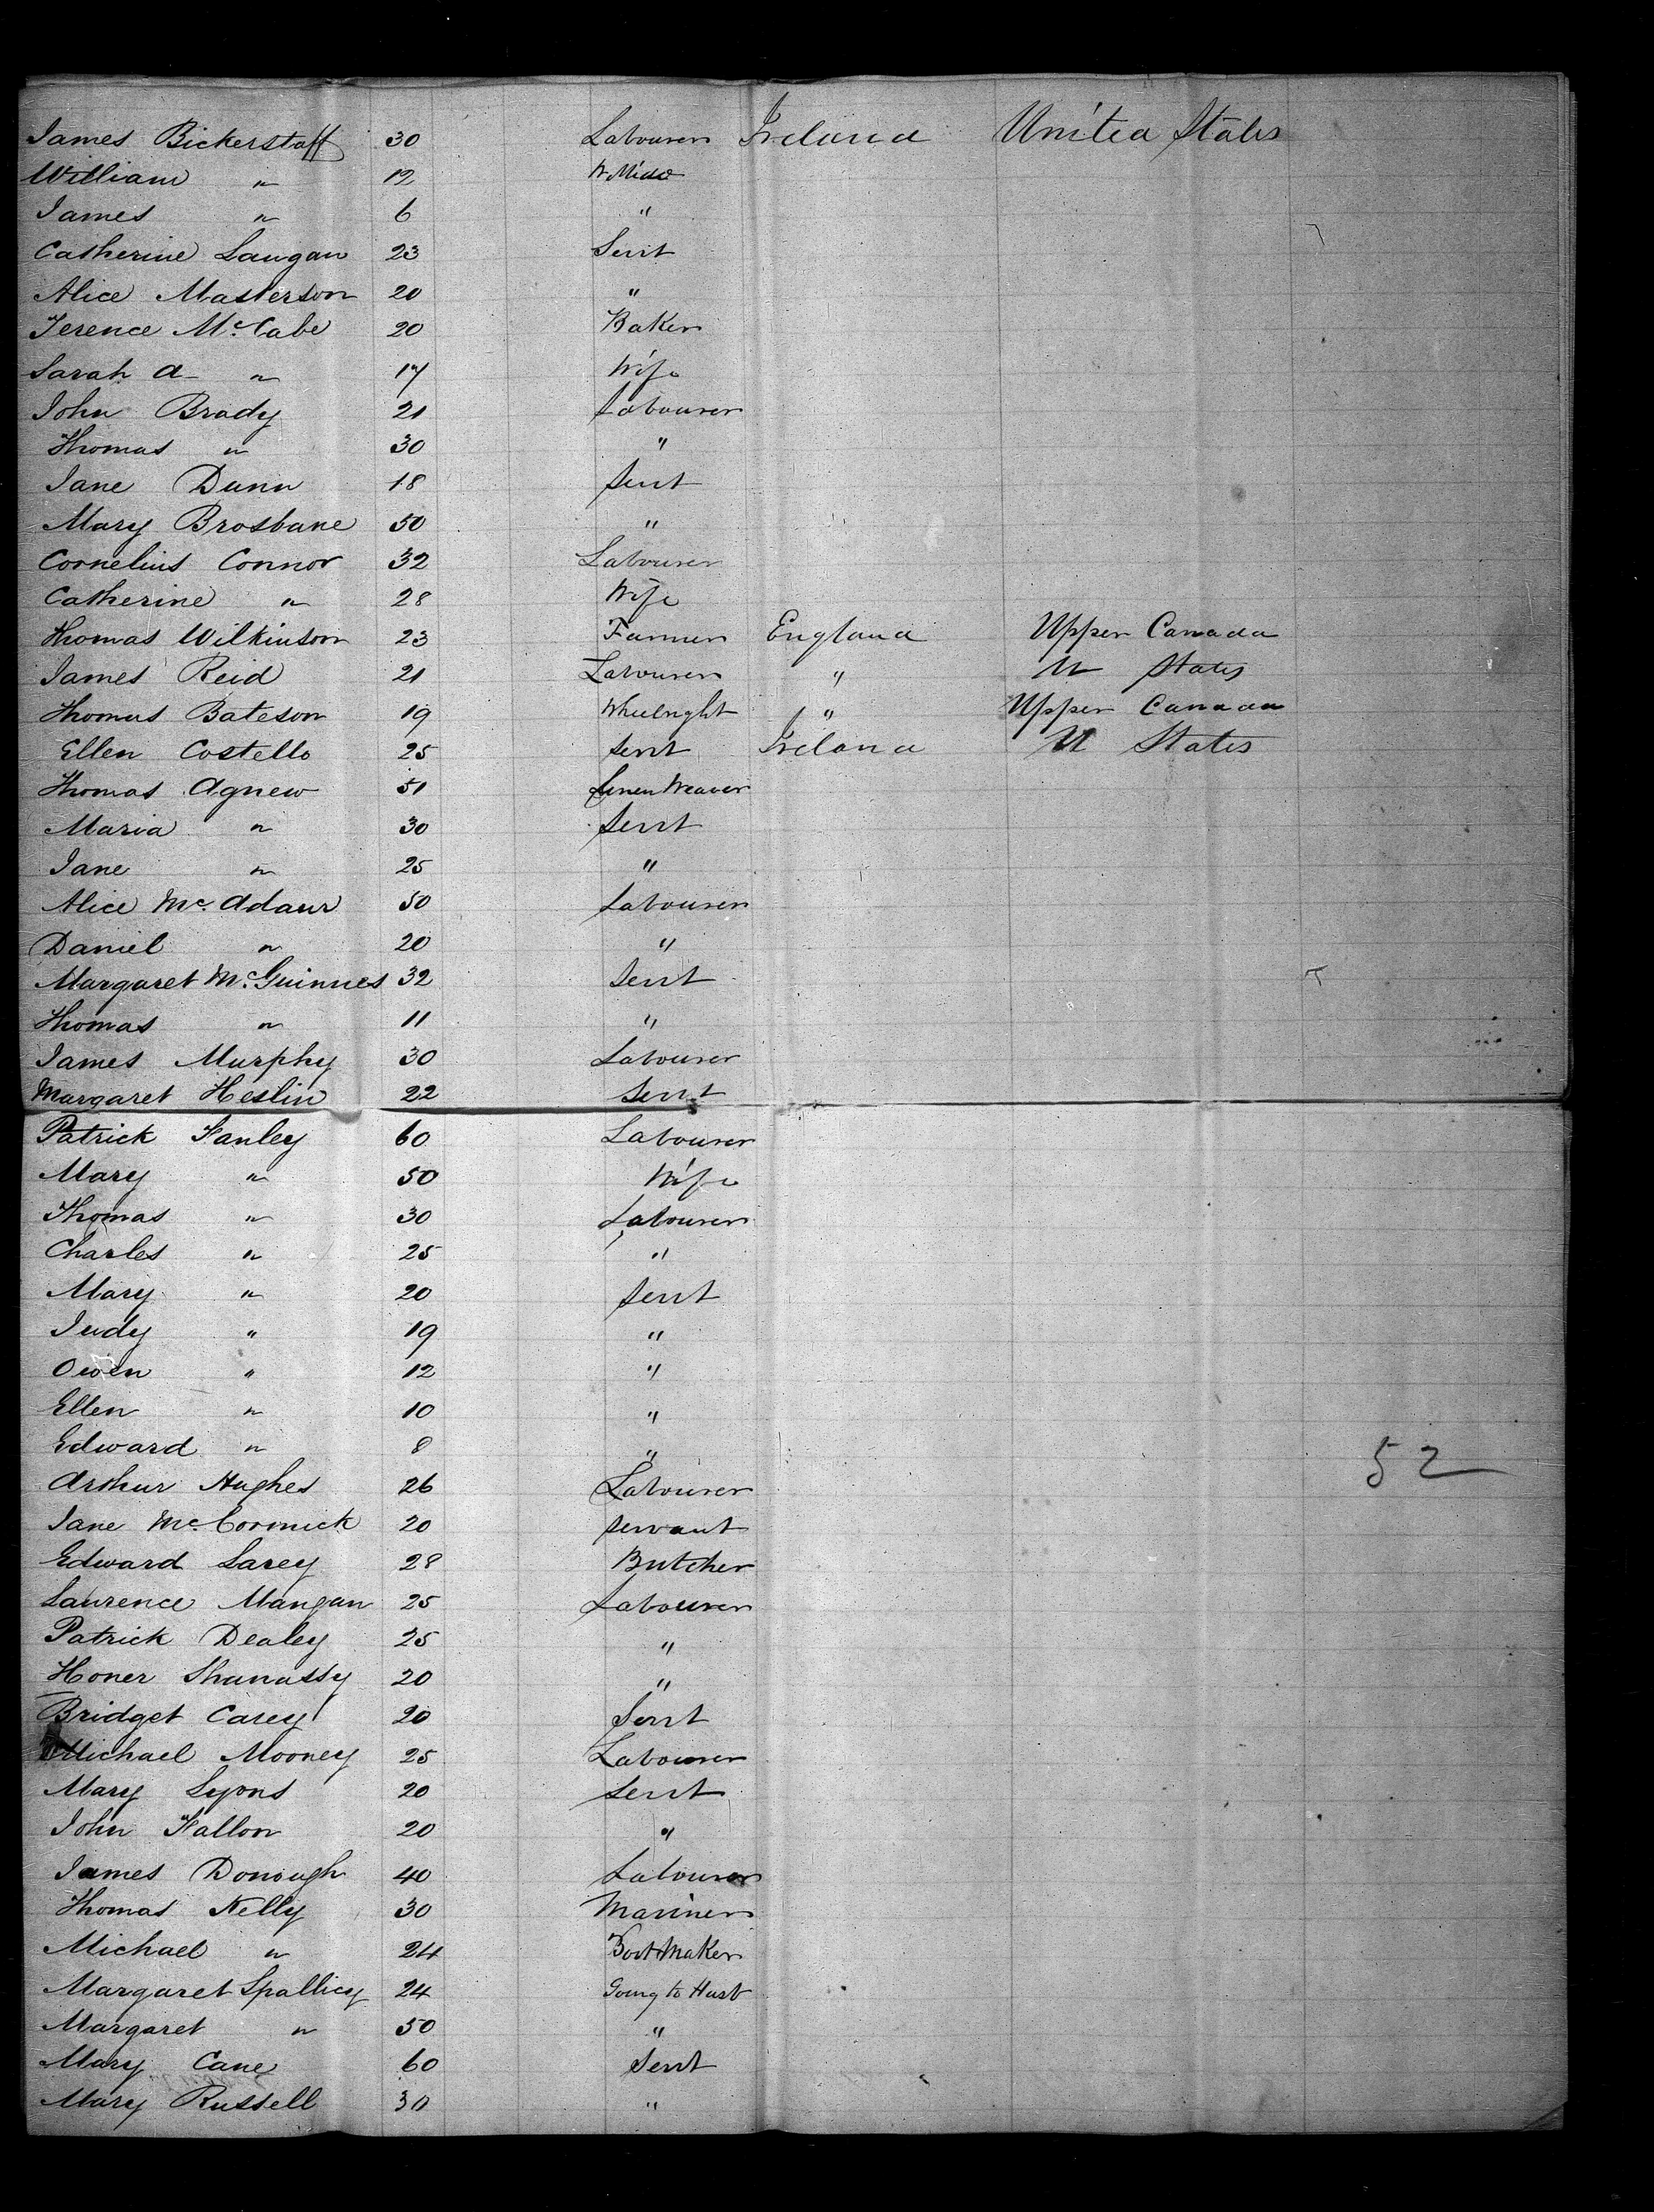 James Bickerstaff 30 Labourer Ireland United States
William " 12
James " 6 "
Catherine Langan 23 Servt
Alice Masterson 20 "
Terence McCabe 20 Baker
Sarah A " 17 Wife
John Brady 21 Labourer
Thomas " 30 "
Jane Dunn 18 Servt
Mary Brosbane 50 "
Cornelius Connor 32 Labourer
Catherine " 28 Wife
Thomas Wilkinson 23 Farmer England Upper Canada
James Reid 21 Labourer " U States
Thomas Bateson 19 Wheelright " Upper Canada
Ellen Costello 25 Servt Ireland U States
Thomas Agnew 51 Linen Weaver
Maria " 30 Servt
Jane " 25 "
Alice McAdam 50 Labourer
Daniel " 20 "
Margaret McGuinnes 32 Servt
Thomas " 11 "
James Murphy 30 Labourer
Margaret Heslin 22 Servt
Patrick Fanley 60 Labourer
Mary " 50 Wife
Thomas " 30 Labourer
Charles " 25 "
Mary " 20 Servt
Judy " 19 "
Owen " 12 "
Ellen " 10 "
Edward " 8 "
52
Arthur Hughes 26 Labourer
Jane McCormick 20 Servant
Edward Larey 28 Butcher
Laurence Mangan 25 Labourer
Patrick Dealey 25 "
Honer Shanassy 20 "
Bridget Carey 20 Servt
Michael Mooney 25 Labourer
Mary Lyons 20 Servt
John Fallon 20 "
James Donough 40 Labourer
Thomas Kelly 30 Mariner
Michael " 24 Boot Maker
Margaret Spallicy 24 Going to Husb
Margaret " 50 "
Mary Cane 60 Servt
Mary Russell 30 "